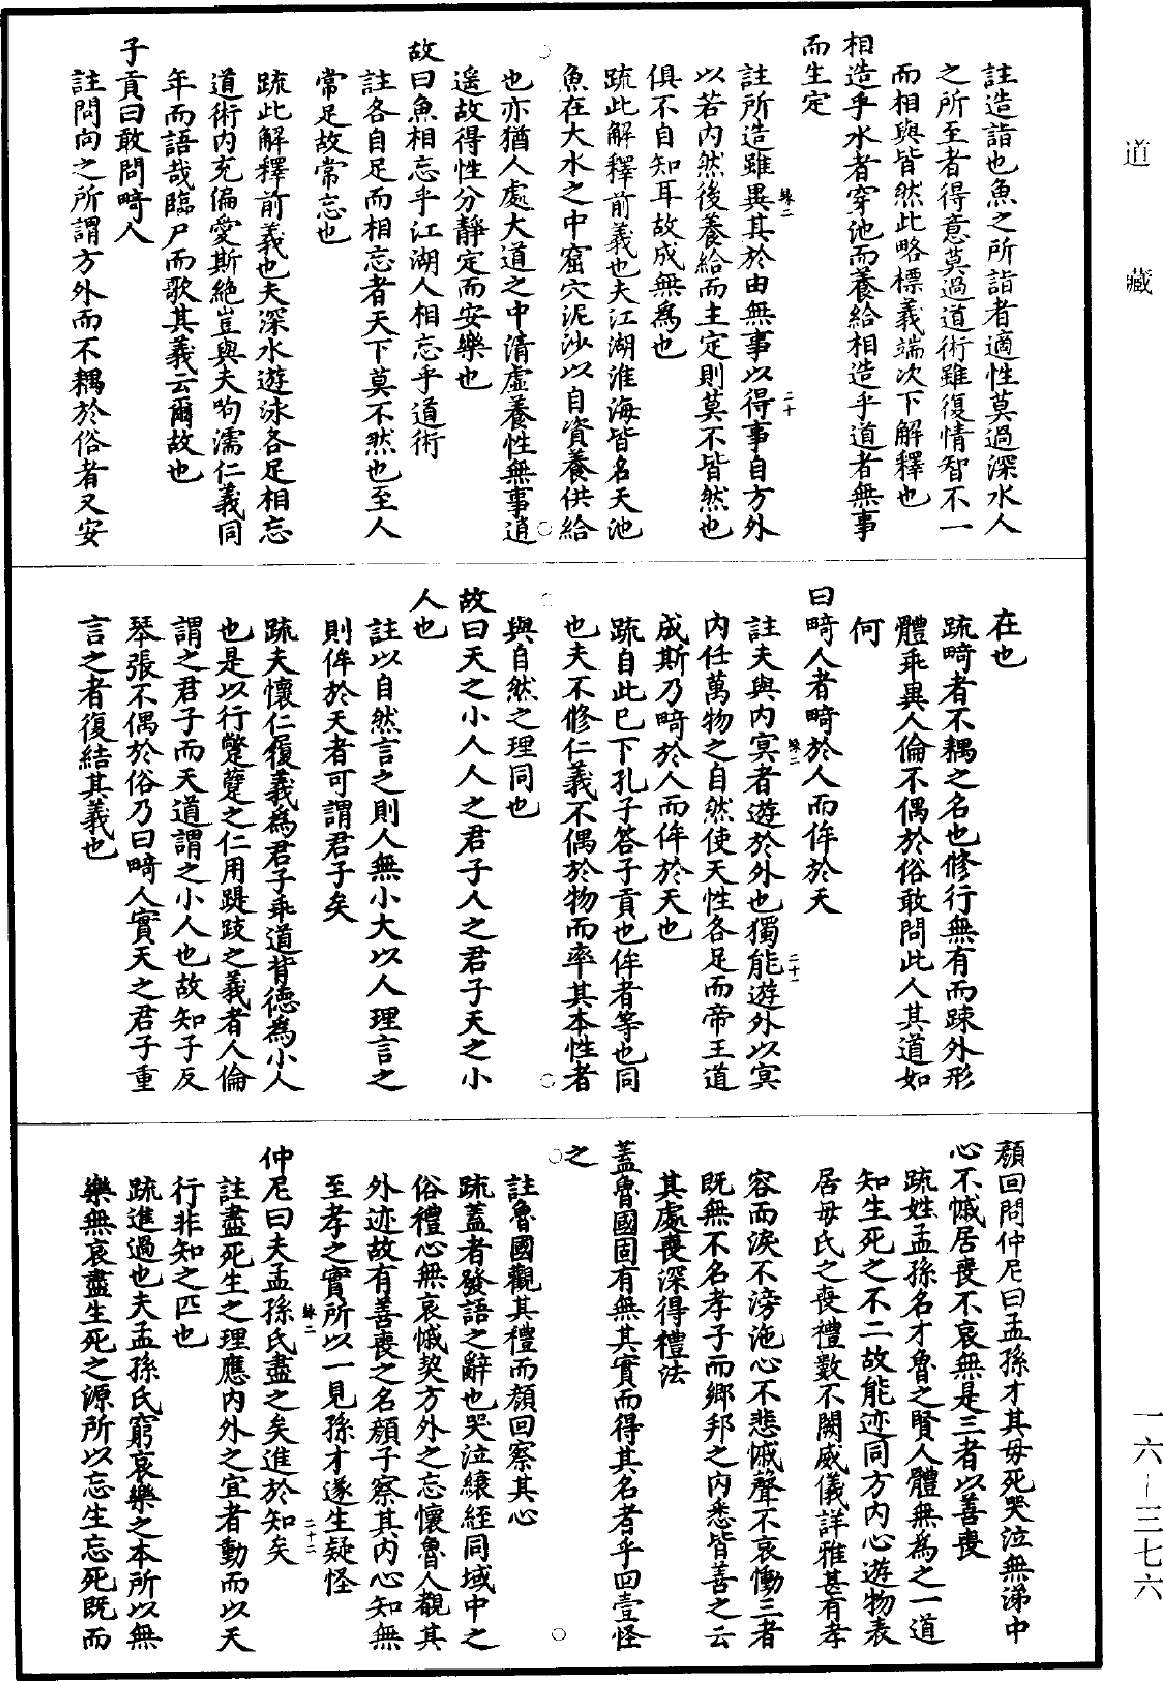 道藏
註造詣也魚之所詣者適性莫過深水人
之所至者得意莫過道術雖復情智不一
而相與皆然此略標義端次下解釋也
相造乎水者穿池而養給相造乎道者無事
而生定
註所造雖異其於由無事以得事自方外
以若内然後養給而主定則莫不皆然也
俱不自知耳故成無為也
疏此解釋前義也夫江湖淮海皆名天池
魚在大水之中窟穴泥沙以自資養供給
也亦猶人處大道之中清虛養性無事逍
遥故得性分靜定而安樂也
故曰魚相忘乎江湖人相忘乎道術
註各自足而相忘者天下莫不然也至人
常足故常忘也
疏此解釋前義也夫深水遊泳各足相忘
道術内充偏愛斯絶豈與夫呴濡仁義同
年而語哉臨尸而歌其義云爾故也
子貢曰敢問畸人
註問向之所謂方外而不耦於俗者又安
在也
疏畸者不耦之名也修行無有而踈外形
體乖異人倫不偶於俗敢問此人其道如
何
曰畸人者畸於人而侔於天
註夫與内冥者遊於外也獨能遊外以冥
内任萬物之自然使天性各足而帝王道
成斯乃畸於人而侔於天也
疏自此已下孔子答子貢也侔者等也同
也夫不修仁義不偶於物而率其本性者
與自然之理同也
故曰天之小人人之君子人之君子天之小
人也
註以自然言之則人無小大以人理言之
則侔於天者可謂君子矣
疏夫懷仁履義為君子乖道背德為小人
也是以行蹩躠之仁用踶跂之義者人倫
謂之君子而天道謂之小人也故知子反
琴張不偶於俗乃曰畸人實天之君子重
言之者復結其義也
顏回問仲尼曰孟孫才其母死哭泣無涕中
心不慼居喪不哀無是三者以善喪
疏姓孟孫名才魯之賢人體無為之一道
知生死之不二故能迹同方内心遊物表
居母氏之喪禮數不闕威儀詳雅甚有孝
容而淚不滂沲心不悲慼聲不哀慟三者
既無不名孝子而鄉邦之内悉皆善之云
其處喪深得禮法
蓋魯國固有無其實而得其名者乎回壹怪
之
註魯國觀其禮而顏回察其心
疏蓋者發語之辭也哭泣縗絰同域中之
俗禮心無哀慼契方外之忘懷魯人覩其
外迹故有善喪之名顏子察其内心知無
至孝之實所以一見孫才遂生疑怪
仲尼曰夫孟孫氏盡之矣進於知矣
註盡死生之理應内外之宜者動而以天
行非知之匹也
疏進過也夫孟孫氏窮哀樂之本所以無
樂無哀盡生死之源所以忘生忘死既而
一六—三七六